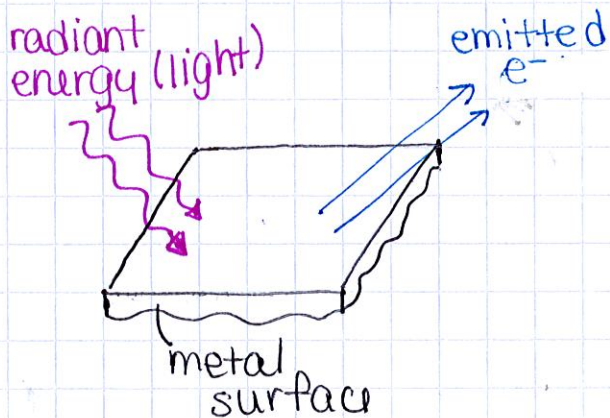 radiant
energy (light)
emitted
e⁻
metal
surface